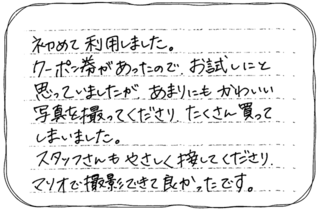 初めて利用しました。
クーポン券があったので、お試しにと
思っていましたが、あまりにもかわいい
写真を撮ってくださり、たくさん買って
しまいました。
スタッフさんもやさしく接してくださり、
マリオで撮影できて良かったです。